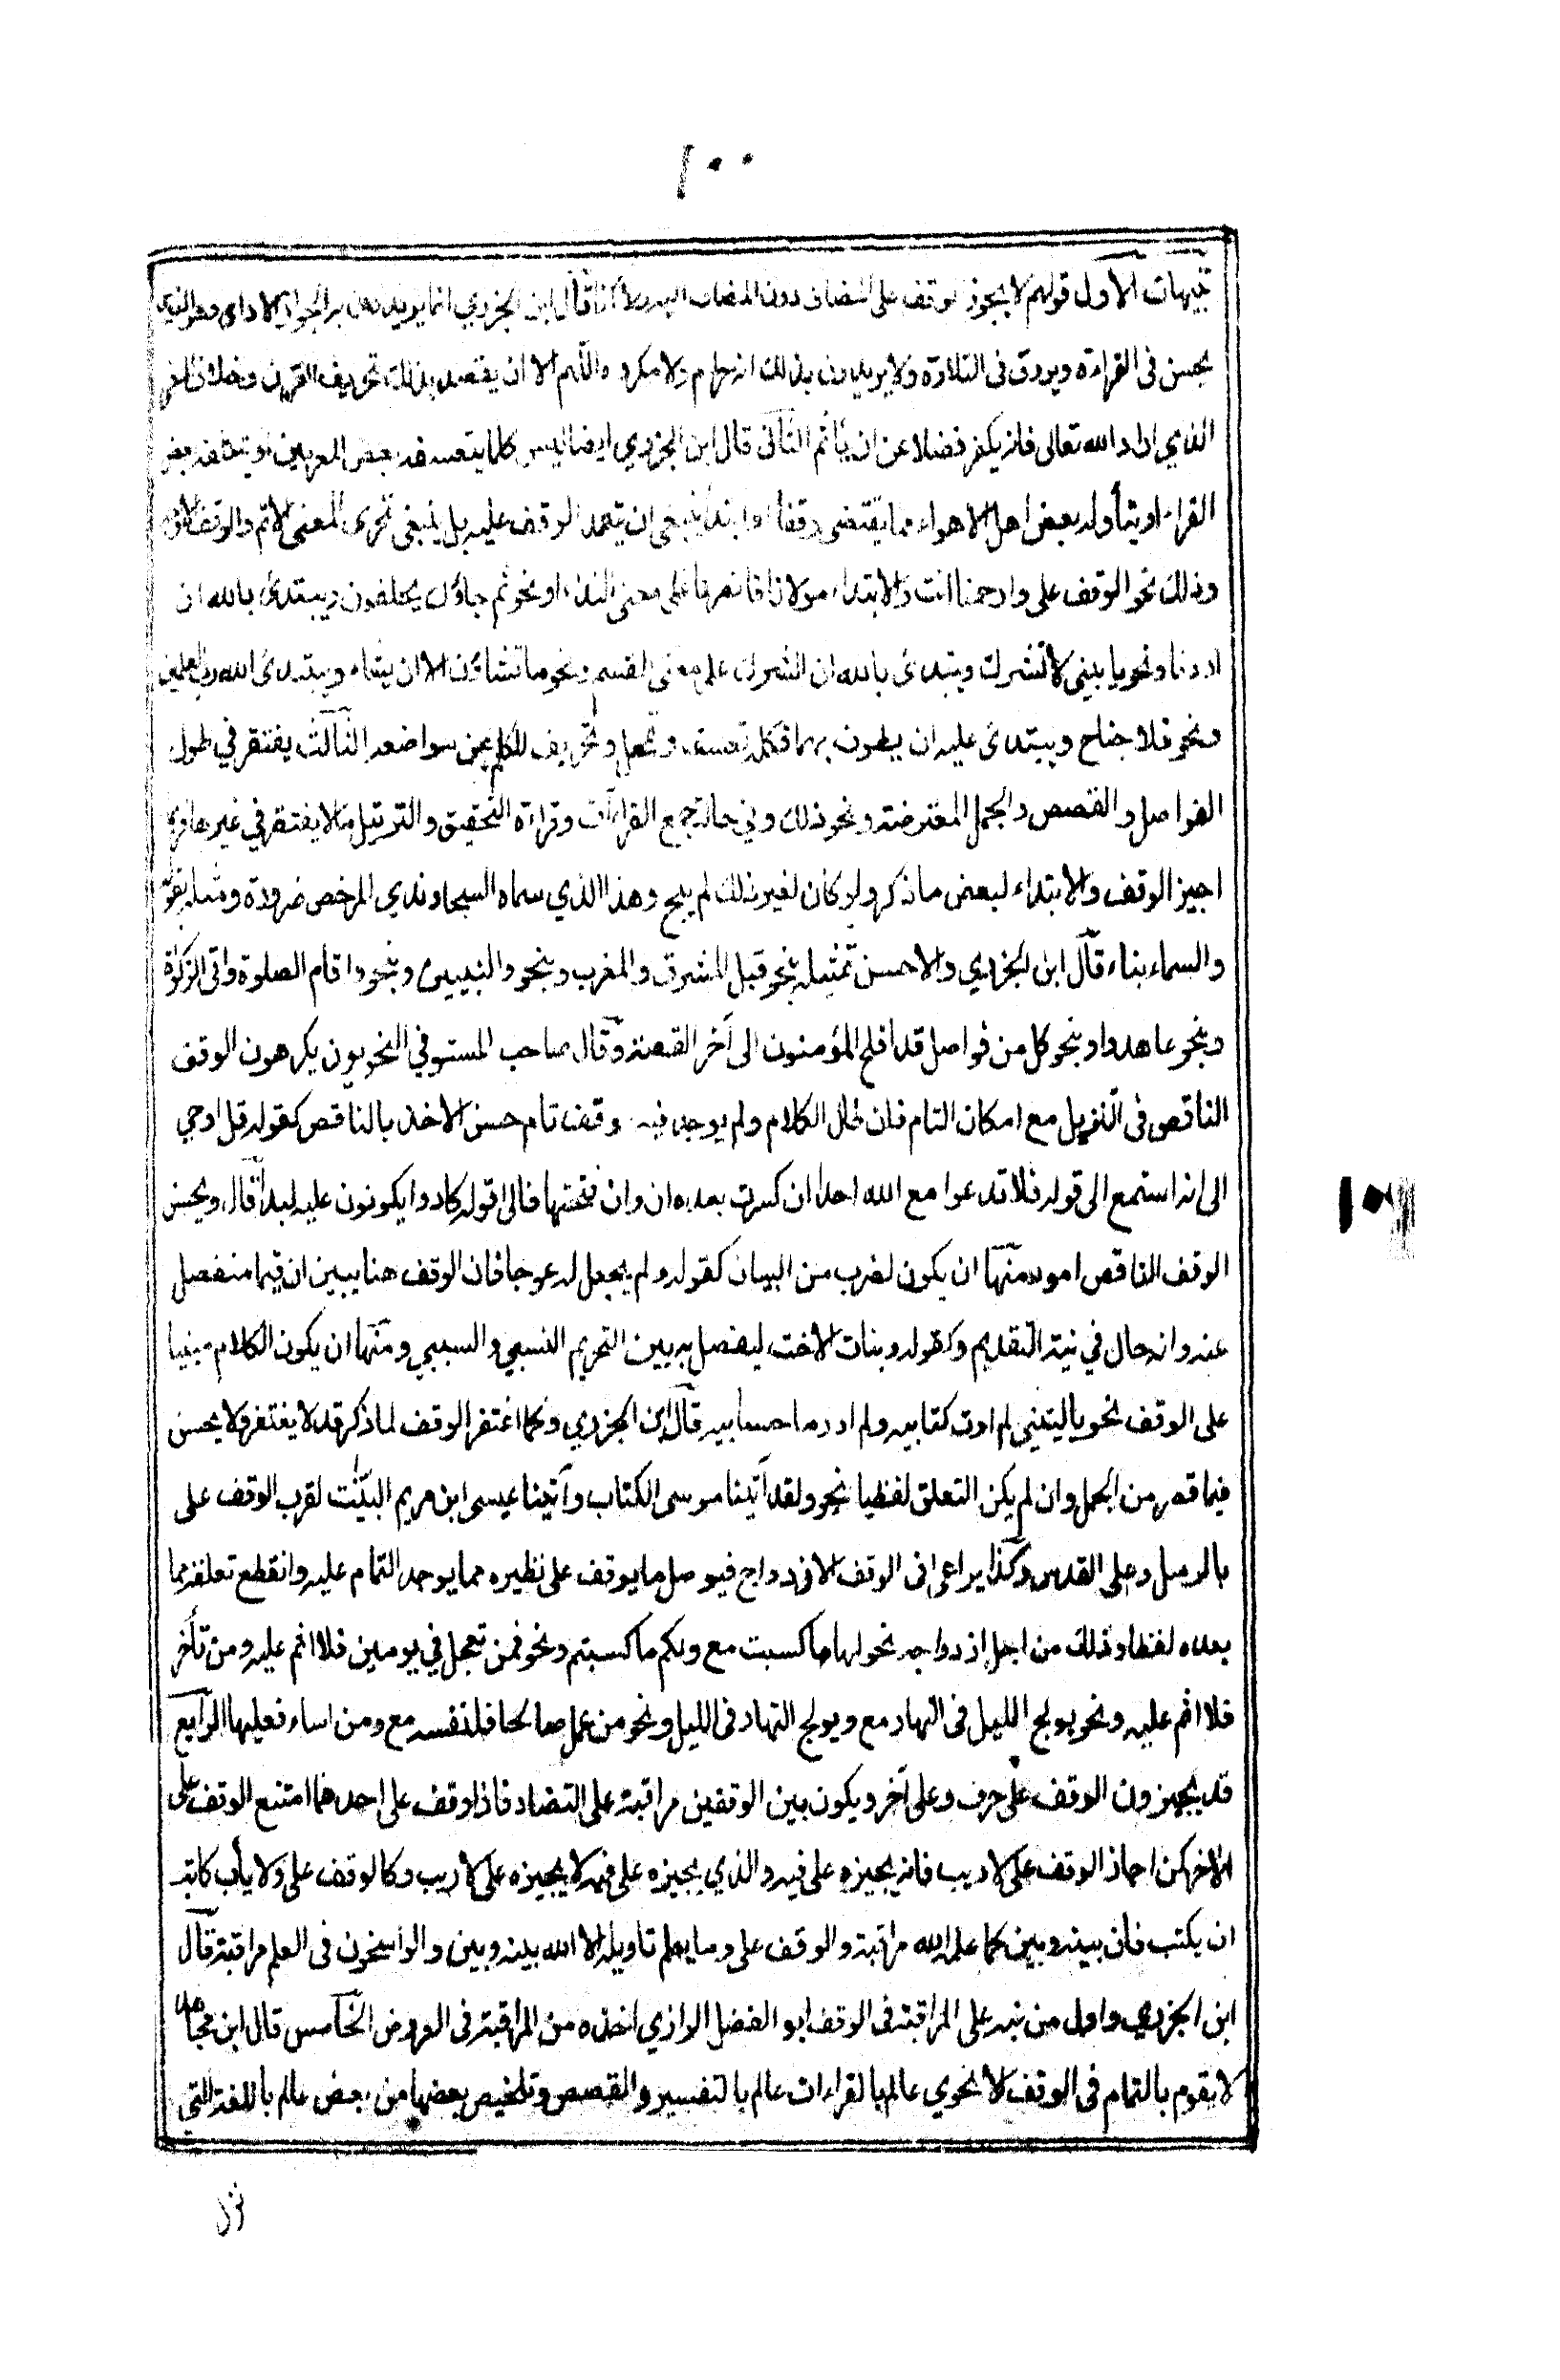 ١٠٠
تنبيهات الاول قولهم لا يجوز الوقف على المضاف دون المضاف اليه ولا كذا قال ابن الجزري انما يريدون به الجواز الادائى وهو الذي
يحسن فى القراءة ويروق فى التلاوة ولا يريدون بذلك انه حرام ولا مكروه اللهم الا ان يقصد بذلك تحريف القرآن وخلاف المعنى
الذي اراد الله تعالى فانه يكفر فضلا عن ان يأثم الثانى قال ابن الجزري ايضا ليس كلما يتعسفه بعض المعربين او يتكلفه بعض
القراء او يتأوله بعض اهل الاهواء مما يقتضى وقفا او ابتدأ ينبغى ان يتعمد الوقف عليه بل ينبغى تحرى المعنى الاتم والوقف الاوجه
وذلك نحو الوقف على وارحمنا انت والابتداء مولانا فانصرنا على معنى النداء ونحو ثم جاؤك يحلفون ويبتدئ بالله ان
اردنا ونحو يا بنى لا تشرك ويبتدئ بالله ان الشرك على معنى القسم ونحو ما تشاؤن الا ان يشاء ويبتدئ الله رب العلمين
ونحو فلا جناح ويبتدئ عليه ان يطوف بهما فكله تعسف وتمحل وتحريف للكلم عن مواضعه الثالث يغتفر في طول
الفواصل والقصص والجمل المعترضة ونحو ذلك وفي حالة جمع القراءآت وقراءة التحقيق والترتيل ما لا يغتفر في غيرها فربما
اجيز الوقف والابتداء لبعض ما ذكر ولو كان لغير ذلك لم يبح وهذا الذي سماه السجاوندي المرخص ضرورة ومثله بقوله
والسماء بناء قال ابن الجزري والاحسن تمثيله بنحو قبل المشرق والمغرب وبنحو والنبيين وبنحو واقام الصلوة واتى الزكوة
وبنحو عاهدوا وبنحو كل من فواصل قد افلح المؤمنون الى آخر القصة وقال صاحب المستوفي النحويون يكرهون الوقف
الناقص فى التنزيل مع امكان التام فان طال الكلام ولم يوجد فيه وقف تام حسن الاخذ بالناقص كقوله قل اوحي
الى انه استمع الى قوله فلا تدعوا مع الله احدا ان كسرت بعده ان وان فتحتها فالى قوله كادوا يكونون عليه لبدا قال ويحسن
الوقف الناقص امور منها ان يكون لضرب من البيان كقوله ولم يجعل له عوجا فان الوقف هنا يبين ان قيما منفصل
عنه وانه حال في نية التقديم وكقوله وبنات الاخت ليفصل به بين التحريم النسبي والسببي ومنها ان يكون الكلام مبنيا
على الوقف نحو يا ليتنى لم اوت كتابيه ولم ادر ما حسابيه قال ابن الجزري وكما اغتفر الوقف لما ذكر قد لا يغتفر ولا يحسن
فيما قصر من الجمل وان لم يكن التعلق لفظيا نحو ولقد آتينا موسى الكتاب وآتينا عيسى ابن مريم البينٰت لقرب الوقف على
بالرسل وعلى القدس وكذا يراعى فى الوقف الازدواج فيوصل ما يوقف على نظيره مما يوجد التمام عليه وانقطع تعلقه بما
بعده لفظا وذلك من اجل ازدواجه نحو لها ما كسبت مع ولكم ما كسبتم ونحو فمن تعجل في يومين فلا اثم عليه ومن تأخر
فلا اثم عليه ونحو يولج الليل فى النهار مع ويولج النهار فى الليل ونحو من عمل صالحا فلنفسه مع ومن اساء فعليها الرابع
قد يجيزون الوقف على حرف وعلى آخر ويكون بين الوقفين مراقبة على التضاد فاذا وقف على احدهما امتنع الوقف على
الاخر كمن اجاز الوقف على لا ريب فانه لا يجيزه على فيه والذي يجيزه على فيه لا يجيزه على لا ريب وكالوقف على ولا يأب كاتب
ان يكتب فان بينه وبين كما علمه الله مراقبة والوقف على وما يعلم تاويله الا الله بينه وبين والراسخون فى العلم مراقبة قال
ابن الجزري واول من نبه على المراقبة فى الوقف ابو الفضل الرازي اخذه من المراقبة فى العروض الخامس قال ابن مجاهد
لا يقوم بالتمام فى الوقف الا نحوي عالم بالقراءات عالم بالتفسير والقصص وتلخيص بعضها من بعض عالم باللغة التي